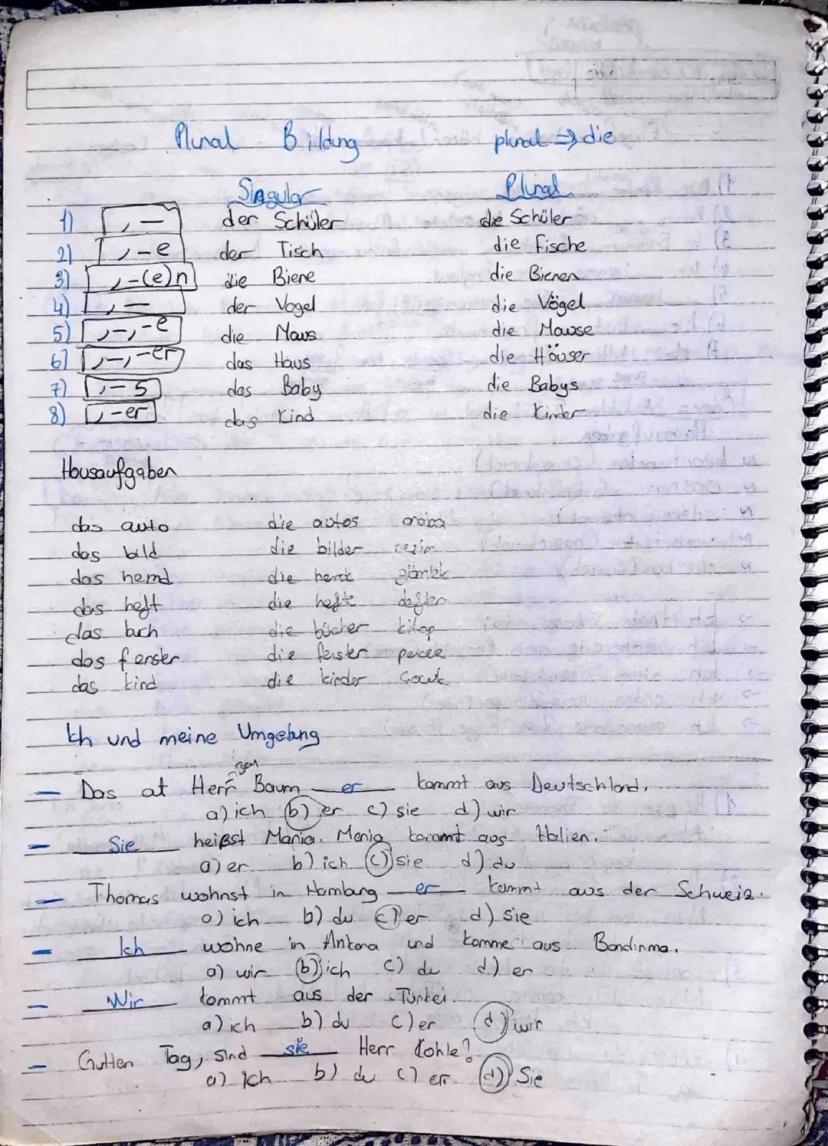 Plural Bildung plural ⇒ die
Singular Plural
1) , — der Schüler die Schüler
2) , -e der Tisch die Fische
3) , -(e)n die Biene die Bienen
4) , — der Vogel die Vögel
5) , -, -e die Maus die Mause
6) , -, -er das Haus die Häuser
7) , - s das Baby die Babys
8) , -er das Kind die Kinder
Hausaufgaben
das auto die autos araba
das bild die bilder resim
das hemd die gömlek
das heft die hefte defter
das buch die bücher kitap
das fenster die fenster
das kind die kinder
Ich und meine Umgebung
gen
— Das at Herr Baum er kommt aus Deutschland.
a) ich b) er c) sie d) wir
— Sie heißst Maria. Maria kommt aus Italien.
a) er b) ich c) sie d) du
— Thomas wohnst in Hamburg er kommt aus der Schweiz.
a) ich b) du c) er d) sie
— Ich wohne in Ankara und komme aus Bandırma.
a) wir b) ich c) du d) er
— Wir kommt aus der Türkei.
a) ich b) du c) er d) wir
— Gutten Tag, sind sie Herr Kohle?
a) Ich b) du c) er d) Sie